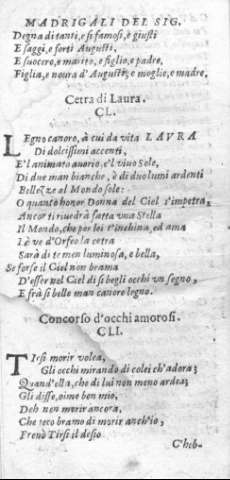 MADRIGALI DEL SIG.
Degna di tanti, e sì famosi, e giusti
E saggi, e forti Augusti,
E suocero, e marito, e figlio, e padre,
Figlia, e noura d'Augusti, e moglie, e madre.
Cetra di Laura.
CL.
LEgno canoro, à cui da vita LAVRA
Di dolcissimi accenti,
E l'animato auorio, e'l viuo Sole,
Di due man bianche, è di duo lumi ardenti
Bellezze al Mondo sole:
O quanto honor Donna del Ciel t'impetra,
Ancor ti vedrà fatta vna Stella
Il Mondo, che per lei t'inchina, ed ama
Là ve d'Orfeo la cetra
Sarà di te men luminosa, e bella,
Se forse il Ciel non brama
D'esser nel Ciel di sì begli occhi vn segno,
E frà sì belle man canoro legno.
Concorso d'occhi amorosi.
CLI.
TIrsi morir volea,
Gli occhi mirando di colei ch'adora;
Quand'ella, che di lui non meno ardea;
Gli disse, oime ben mio,
Deh non morir ancora,
Che teco bramo di morir anch'io,
Frenò Tirsi il desio
C'heb-